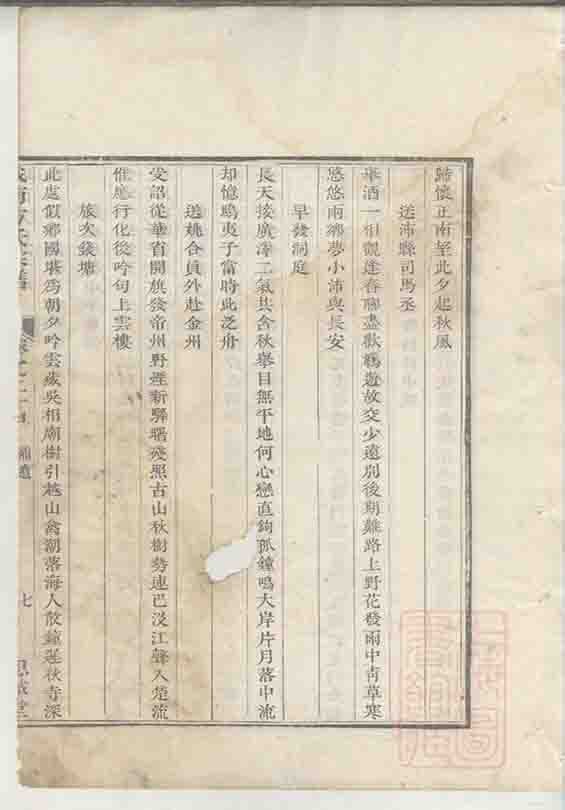 歸懷正南至此夕起秋風
送沛縣司馬丞
舉酒一相觀逢春聊盡歡羇遊故交少遠別後期難路上野花發雨中青草寒
悠悠兩鄉夢小沛與長安
早發洞庭
長天接廣澤二氣共含秋舉目無平地何心戀直鉤孤鐘鳴大岸片月落中流
却憶鴟夷子當時此泛舟
送姚合員外赴金州
受詔從華省開旗發帝州野煙新驛曙殘照古山秋樹勢連巴沒江聲入楚流
惟應行化後吟句上雲樓
旅次錢塘
此處似鄉國堪爲朝夕吟雲藏吳相廟樹引越山禽潮落海人散鐘遲秋寺深
補遺
七
圖書館